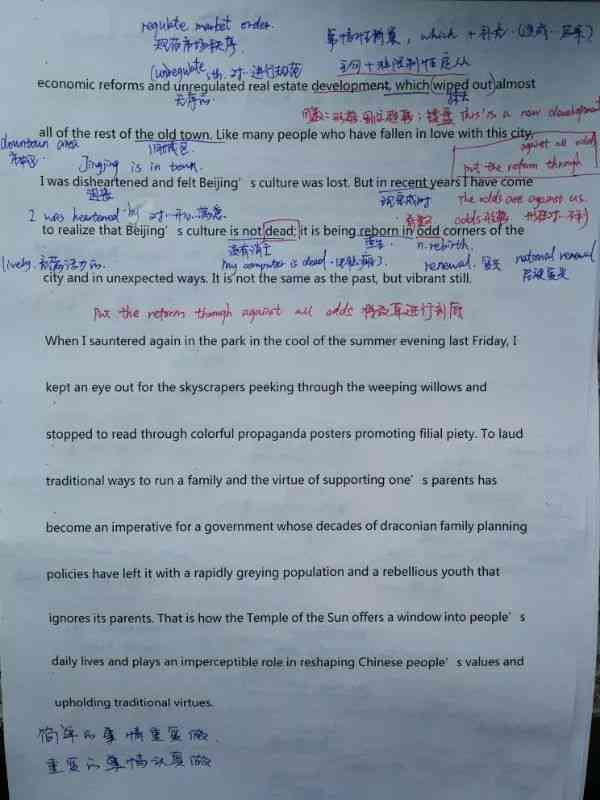 regulate market order.
规范市场秩序
(unregulate sth. 对…进行规范
economic reforms and unregulated real estate development, which (wiped out) almost
无序的
This is a new development
all of the rest of the old town. Like many people who have fallen in love with this city,
downtown area
旧城区
against all odds
put the reform through
市中心
Jingjing is in town.
I was disheartened and felt Beijing's culture was lost. But in recent years I have come
沮丧
现完成时
The odds are against us.
I was heartened by 对…开心
to realize that Beijing's culture is not dead; it is being reborn in odd corners of the
没有消亡
重生.
n. rebirth.
lively.
my computer is dead.
renewal. 复兴
national renewal
民族复兴
city and in unexpected ways. It is not the same as the past, but vibrant still.
Put the reform through against all odds 将改革进行到底
When I sauntered again in the park in the cool of the summer evening last Friday, I
kept an eye out for the skyscrapers peeking through the weeping willows and
stopped to read through colorful propaganda posters promoting filial piety. To laud
traditional ways to run a family and the virtue of supporting one's parents has
become an imperative for a government whose decades of draconian family planning
policies have left it with a rapidly greying population and a rebellious youth that
ignores its parents. That is how the Temple of the Sun offers a window into people's
daily lives and plays an imperceptible role in reshaping Chinese people's values and
upholding traditional virtues.
简单的事情重复做.
重复的事情认真做